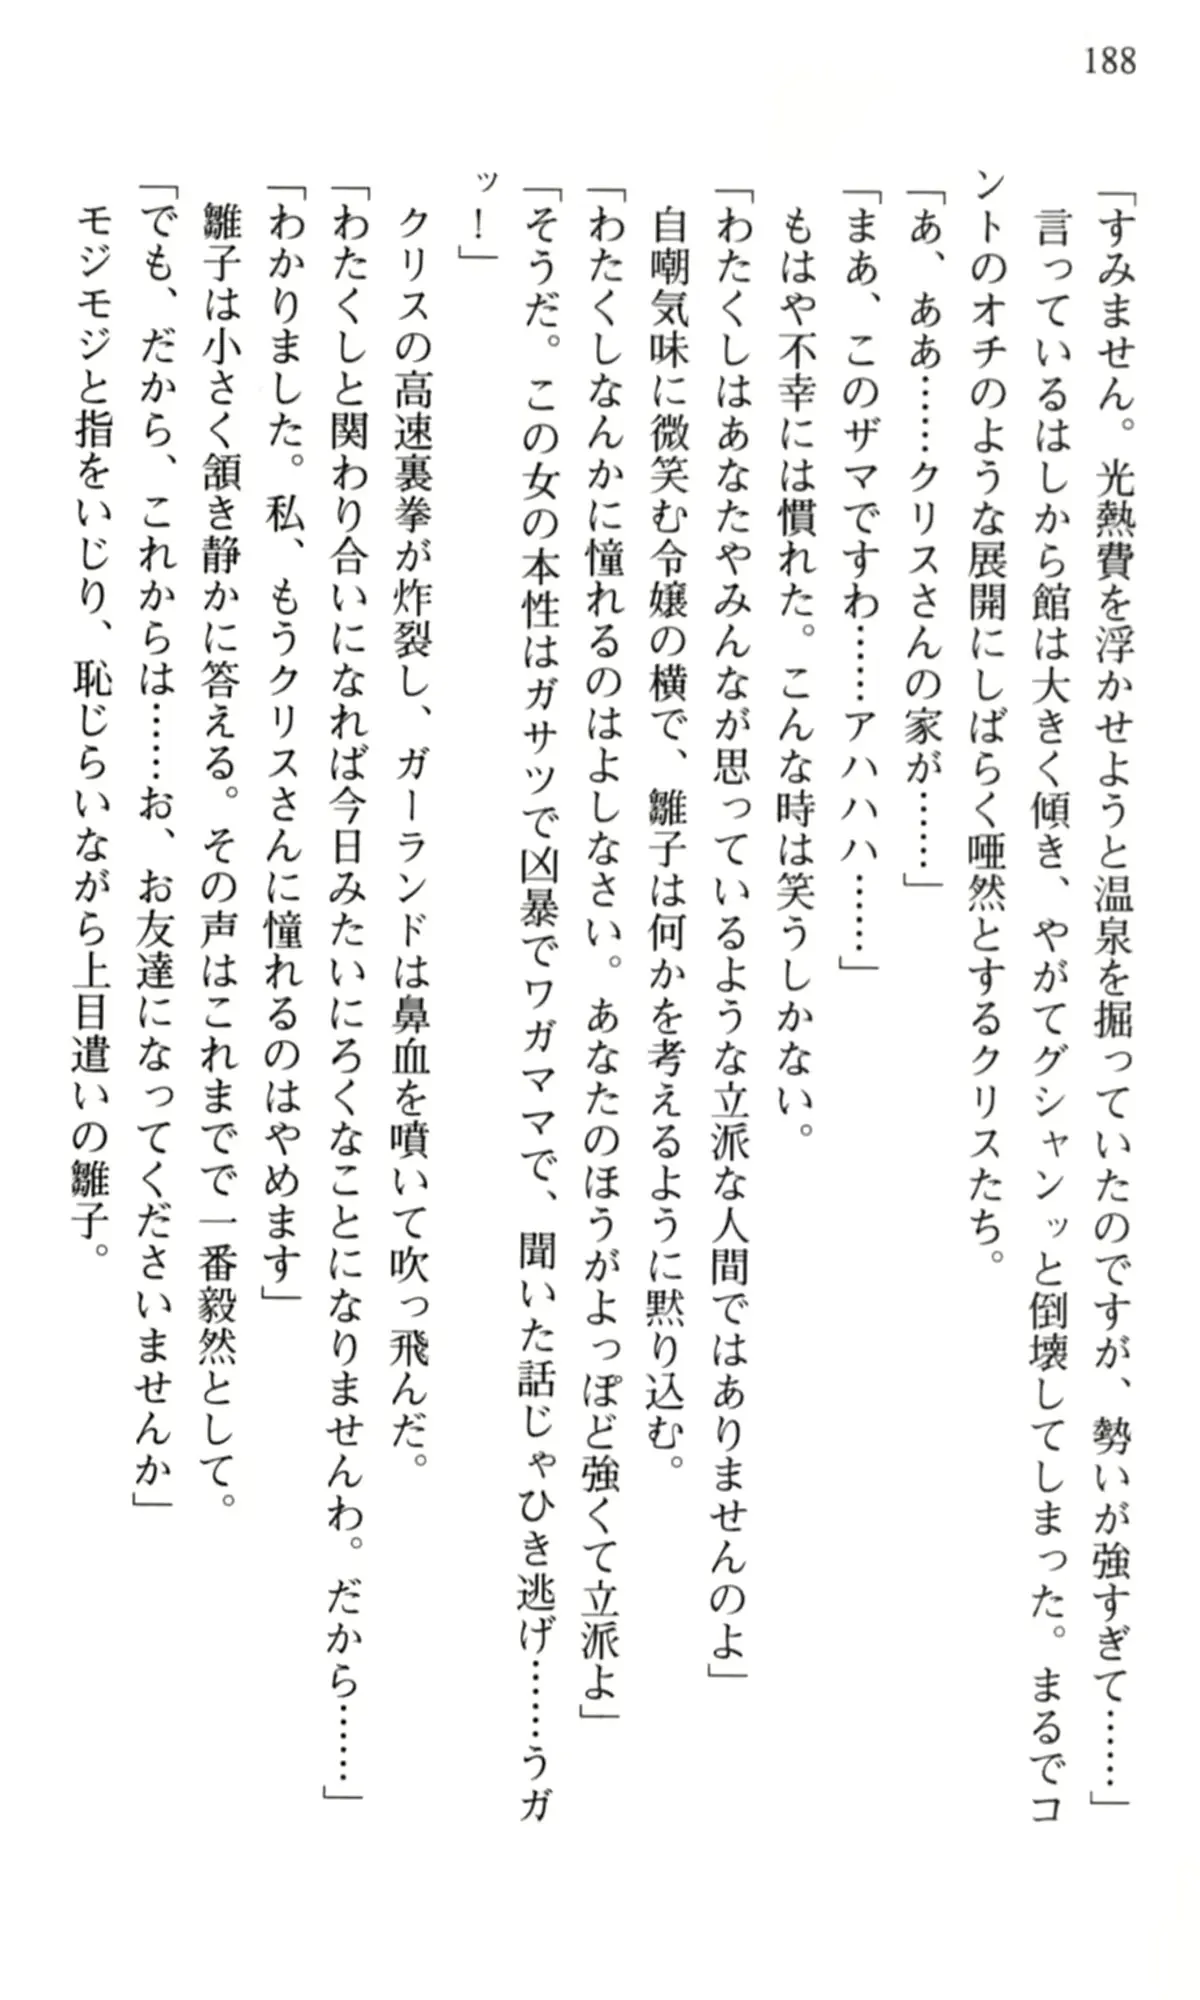 188
「すみません。光熱費を浮かせようと温泉を掘っていたのですが、勢いが強すぎて……」
言っているはしから館は大きく傾き、やがてグシャンッと倒壊してしまった。まるでコ
ントのオチのような展開にしばらく唖然とするクリスたち。
「あ、ああ……クリスさんの家が……」
「まぁ、このザマですわ……アハハハ……」
もはや不幸には慣れた。こんな時は笑うしかない。
「わたくしはあなたやみんなが思っているような立派な人間ではありませんのよ」
自嘲気味に微笑む令嬢の横で、雛子は何かを考えるように黙り込む。
「わたくしなんかに憧れるのはよしなさい。あなたのほうがよっぽど強くて立派よ」
「そうだ。この女の本性はガサツで凶暴でワガママで、聞いた話じゃひき逃げ……うガ
ッ！」
クリスの高速裏拳が炸裂し、ガーランドは鼻血を噴いて吹っ飛んだ。
「わたくしと関わり合いになれば今日みたいにろくなことになりませんわ。だから……」
「わかりました。私、もうクリスさんに憧れるのはやめます」
雛子は小さく頷き静かに答える。その声はこれまでで一番毅然として。
「でも、だから、これからは……お、お友達になってくださいませんか」
モジモジと指をいじり、恥じらいながら上目遣いの雛子。